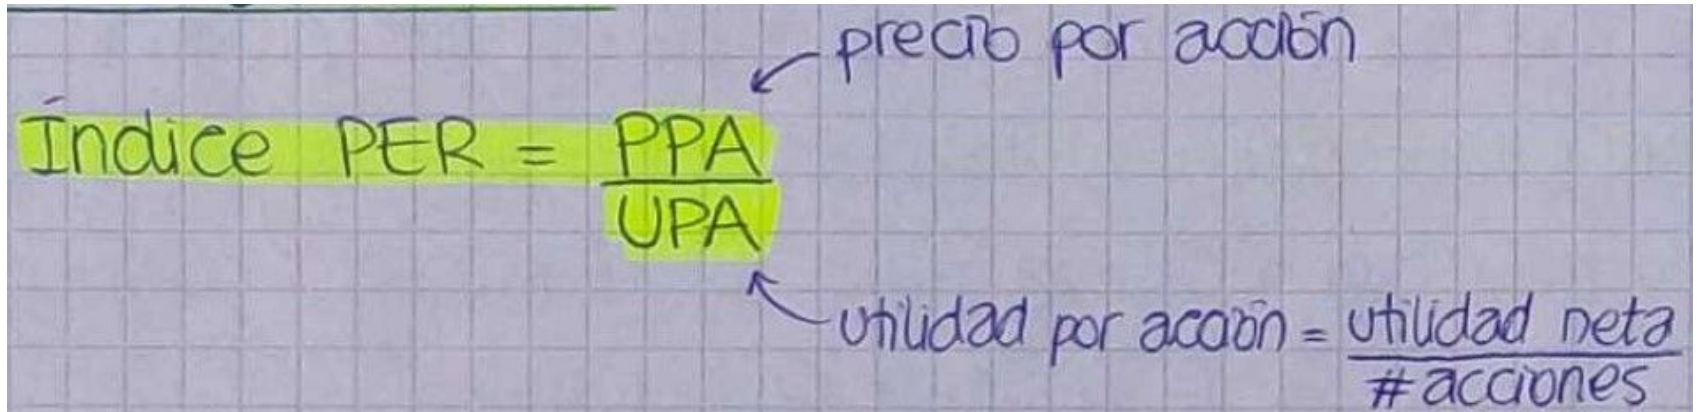 precio por acción
Índice PER = PPA
UPA
utilidad por acción = utilidad neta
# acciones